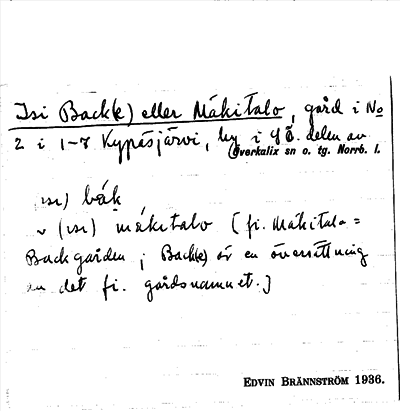 Isi Back(e) eller Mäkitalo, gård i No
2 i 1-7 Kypäsjärvi, by i SÖ. delen av
Överkalix sn o. tg. Norrb. l.
(ısı) bäk
v (ısı) mäkitalo [fi. Mäkitalo =
Backgården; Back(e) är en översättning
av det fi. gårdsnamnet.]
EDVIN BRÄNNSTRÖM 1936.